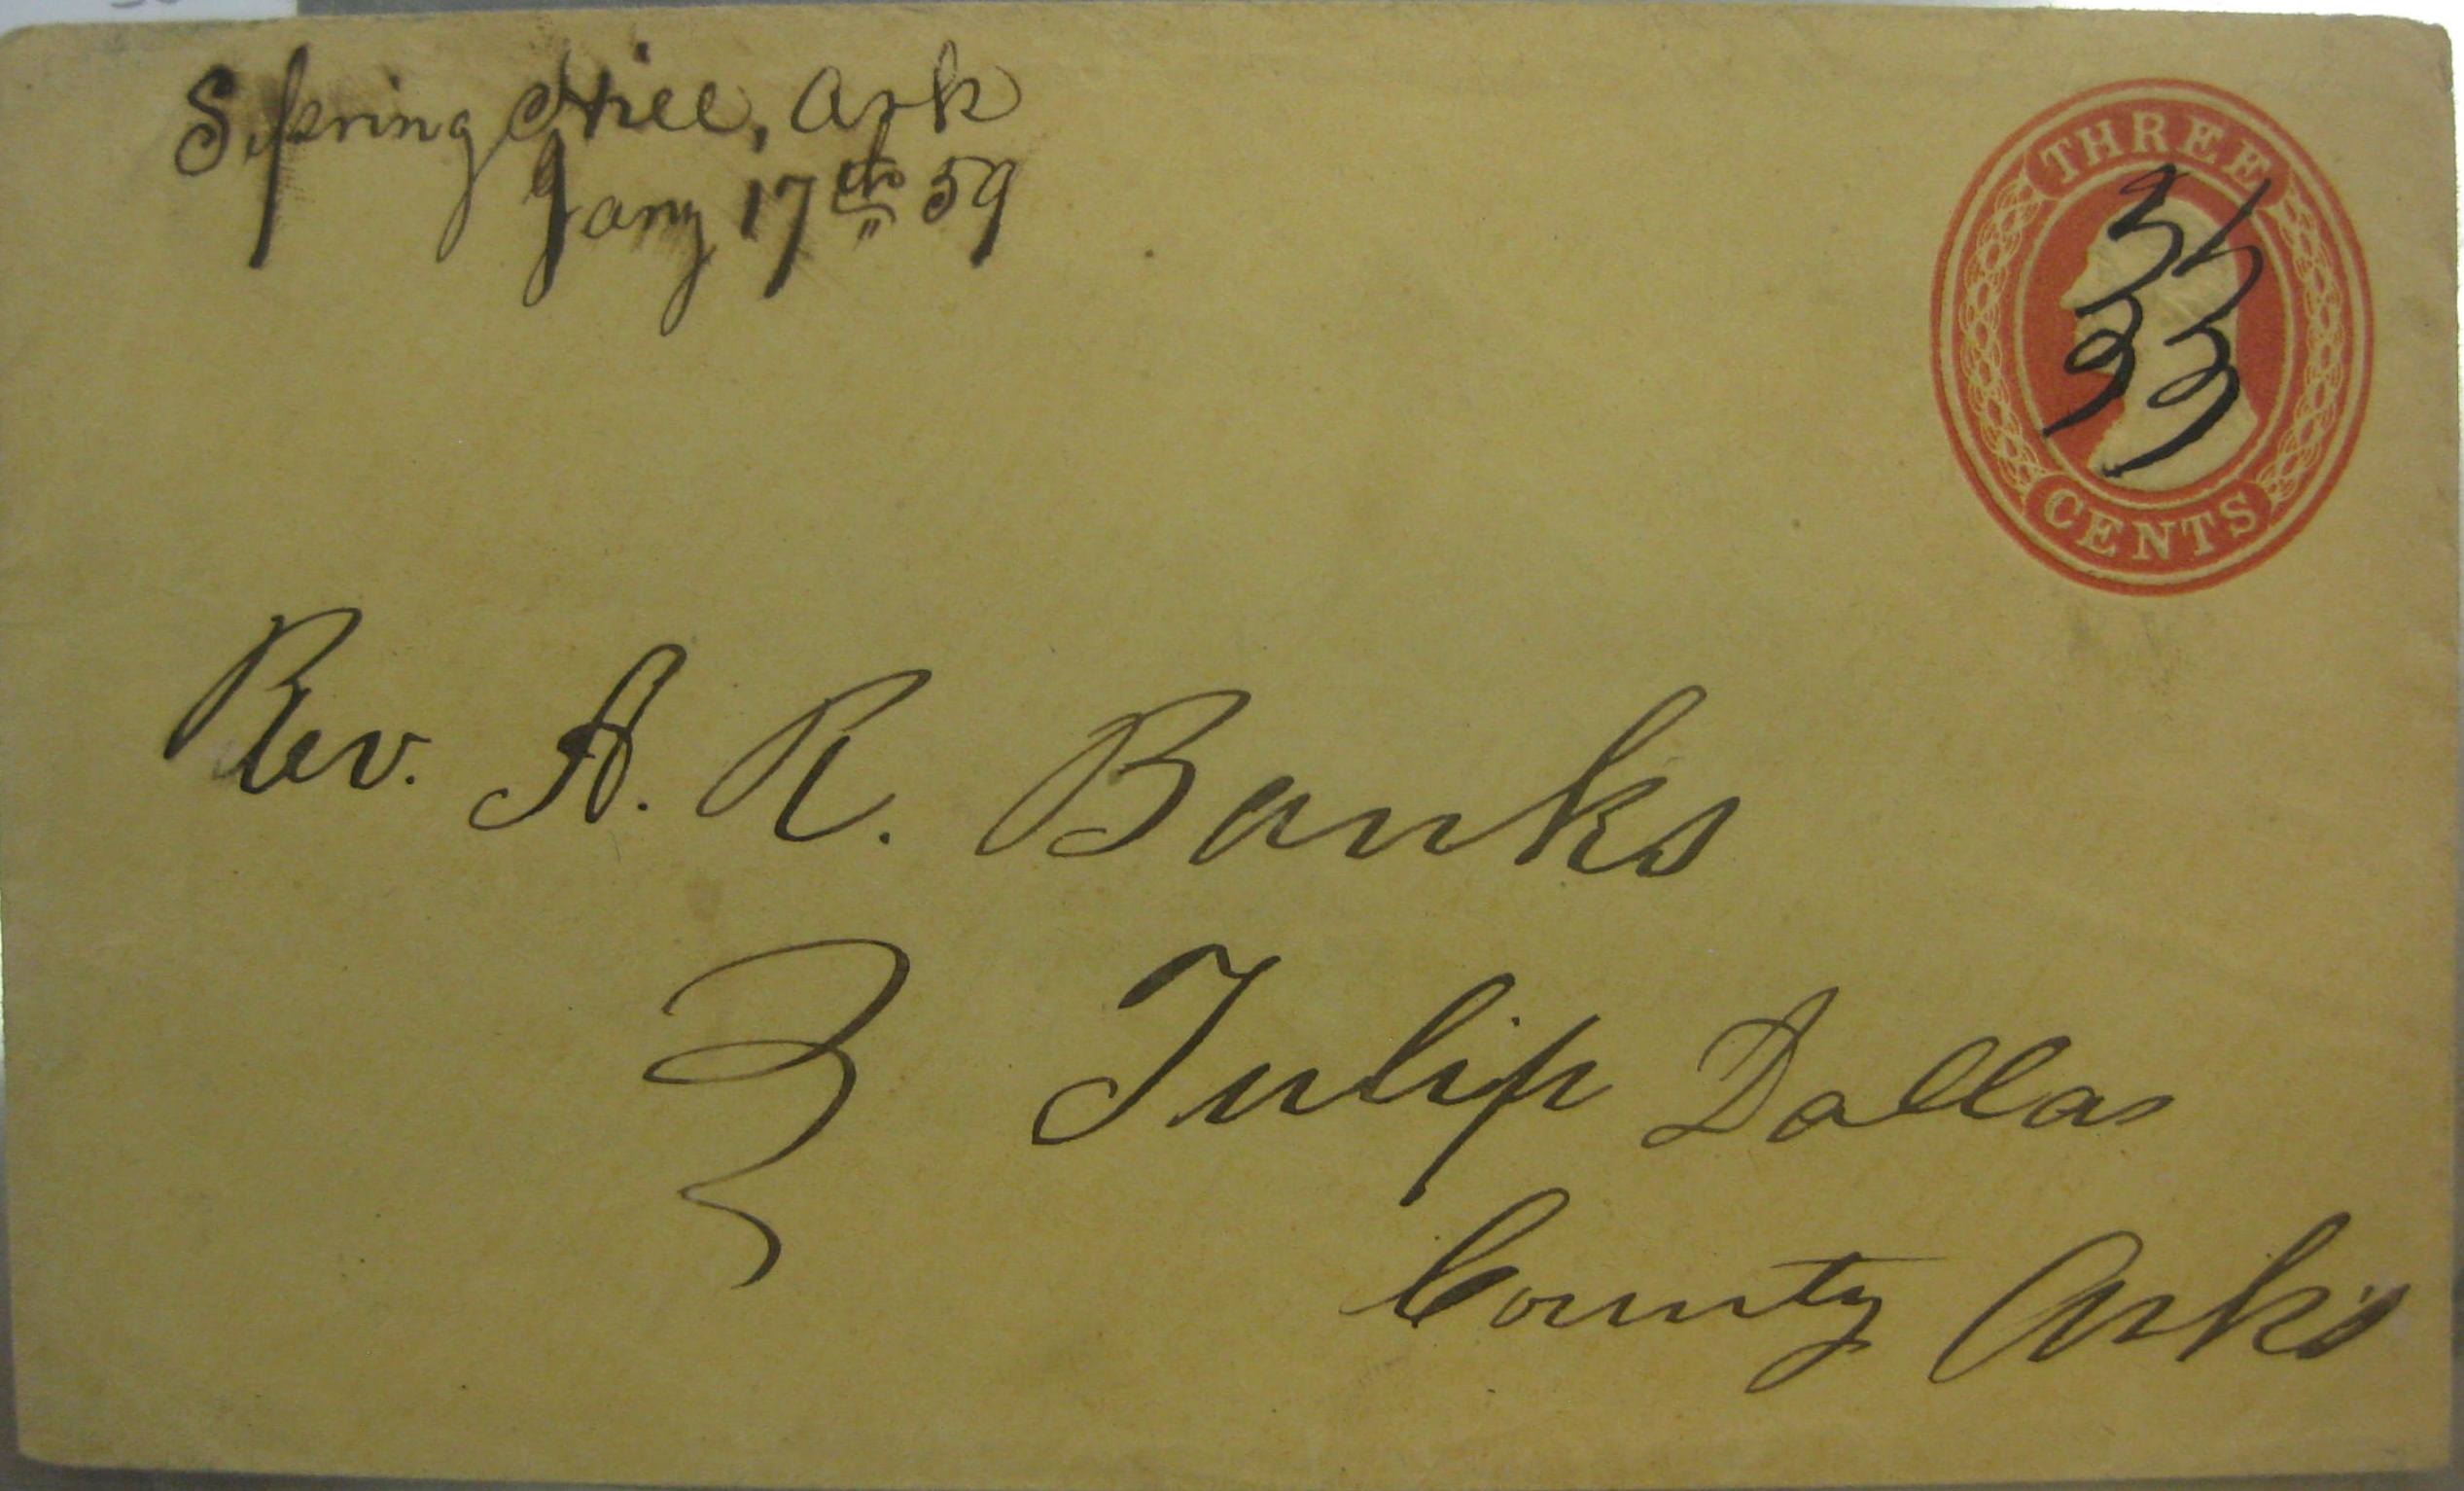 Spring Hill, Ark
Jany 17th 59
THREE
CENTS
Rev. A. R. Banks
Tulip Dallas
County Arks